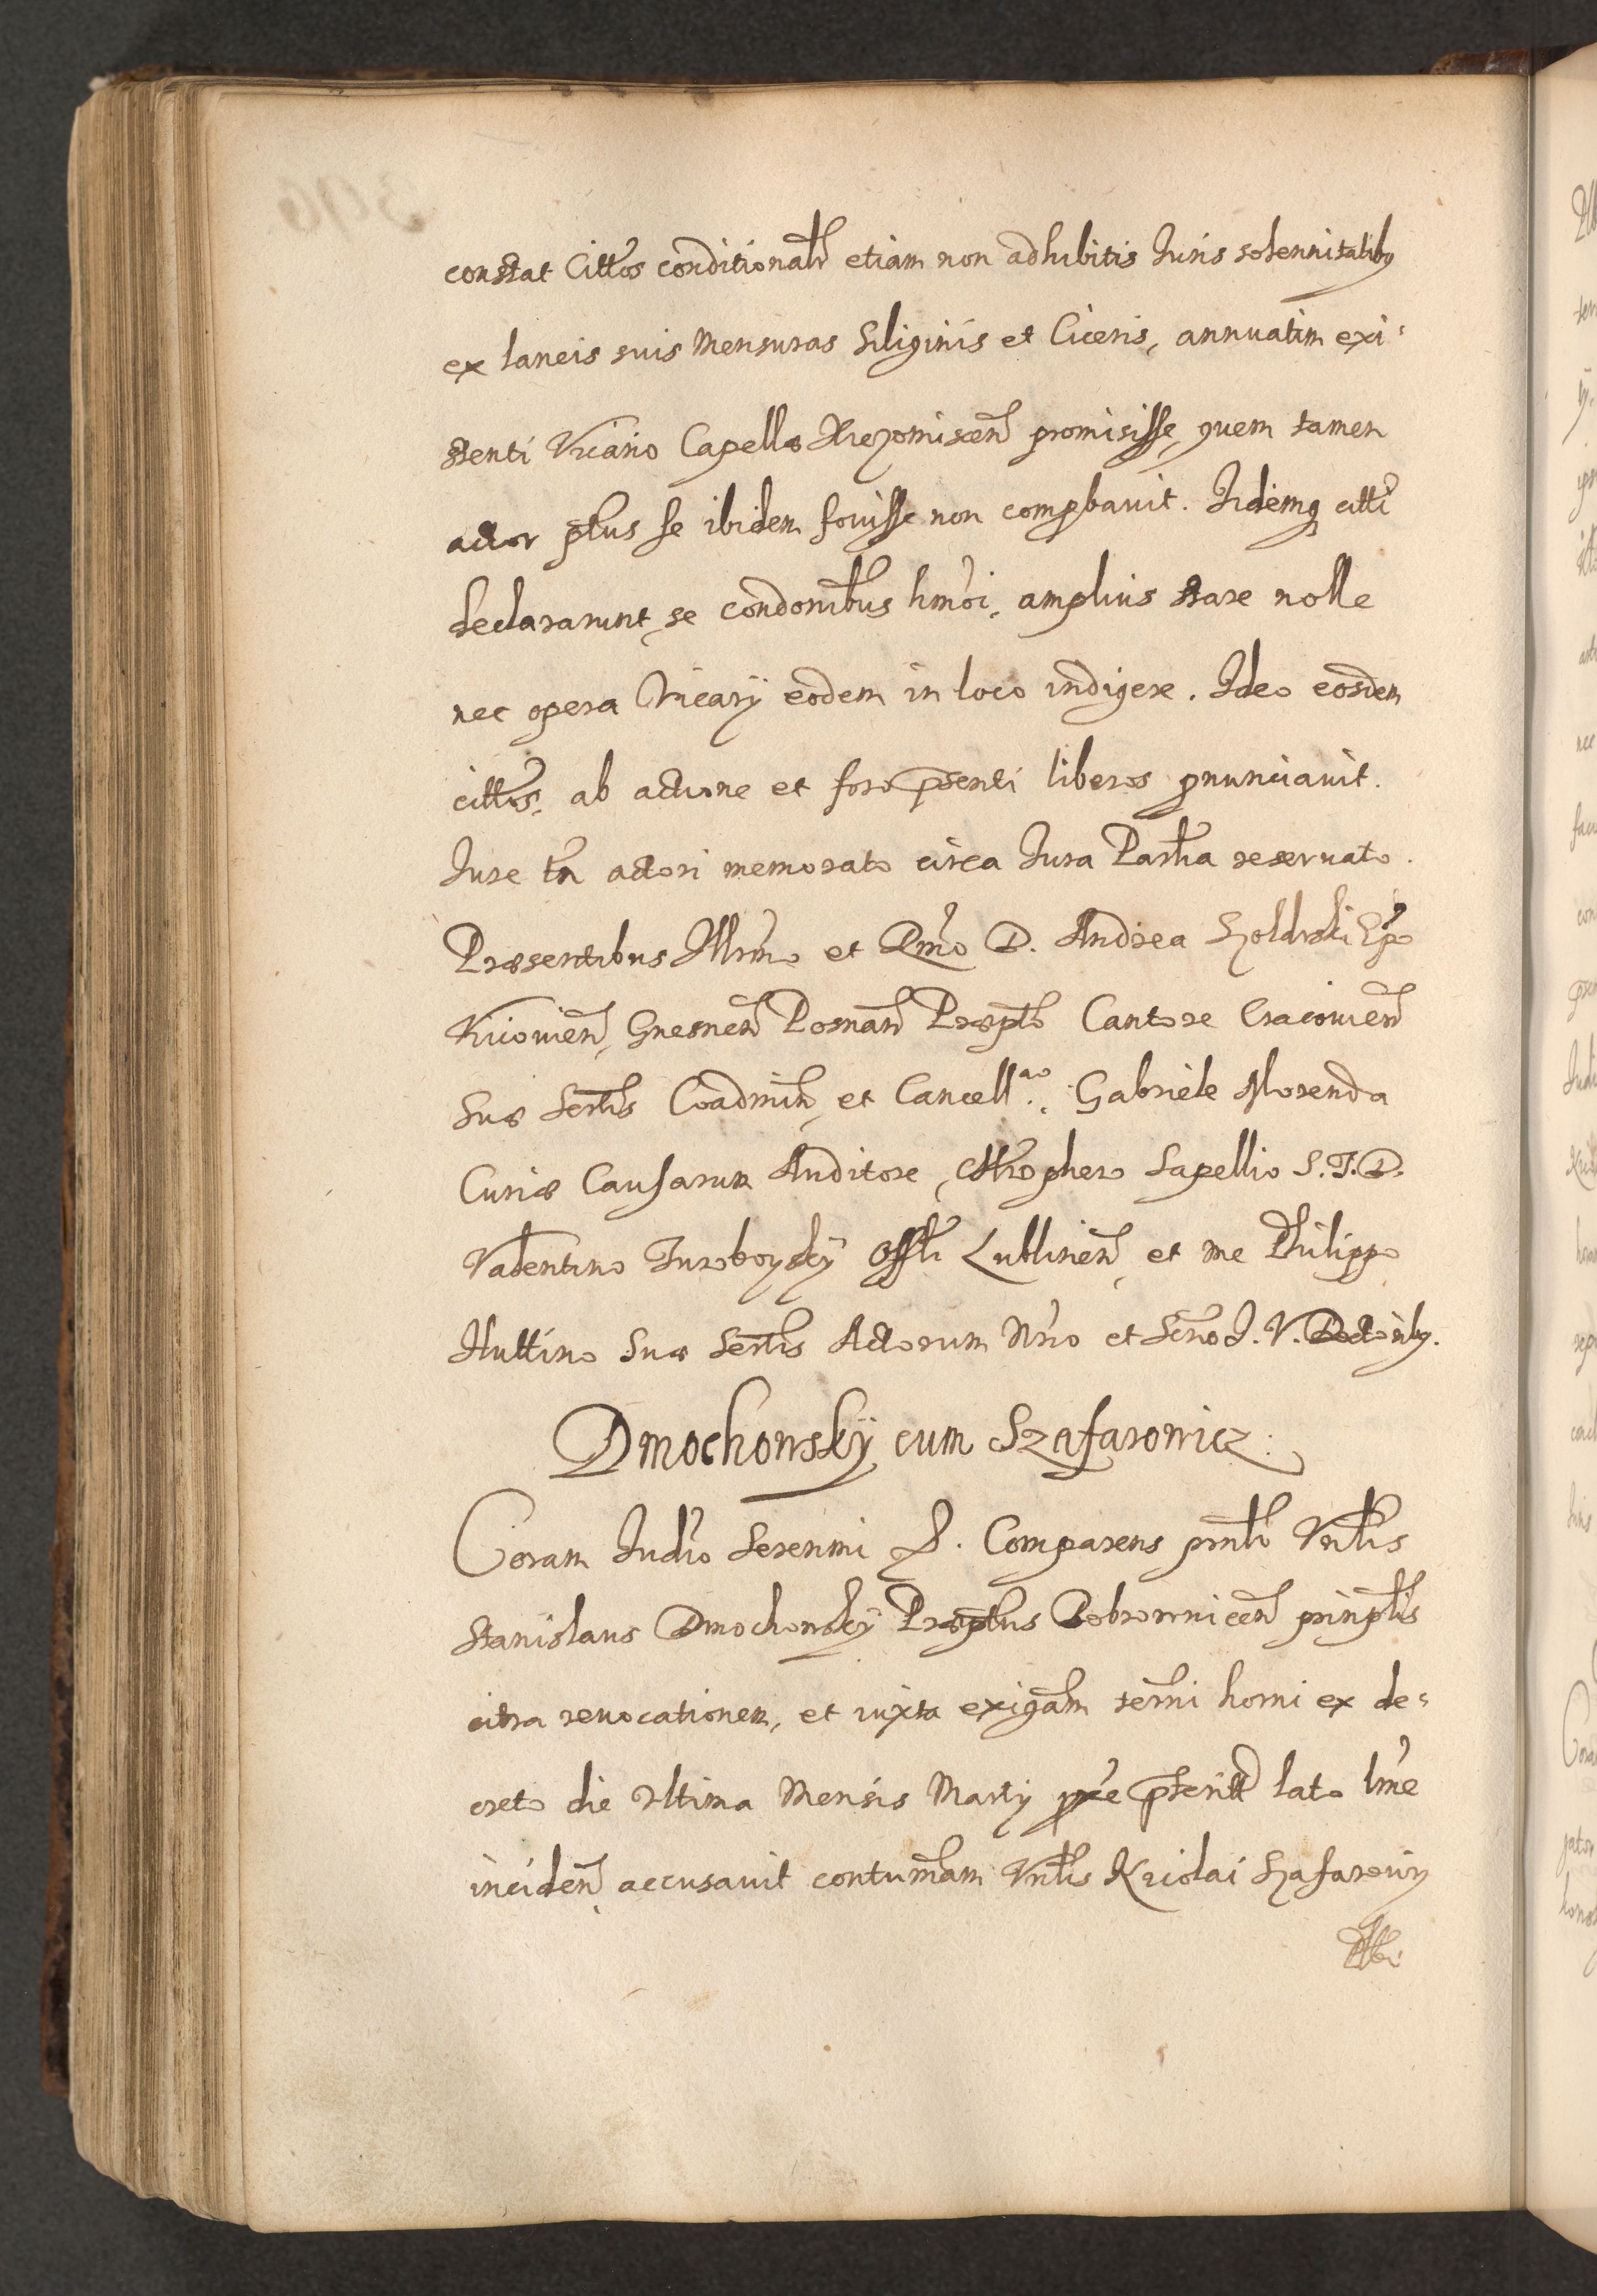 constat Cittos conditionalr etiam non adhibitis Iuris solennitatibq
ex laneis suis Mensuras Siliginis et Ciceris, annuatim exi=
stenti Vicario Capellæ promisisse, quem tamen
actor ptus se ibidem fouisse non compbauit. Iidemq citti
declararunt, se condonibus hmoi, amplius stare nolle
nec opera Vicarÿ eodem in loco indigere. Ideo eosdem
cittos, ab actione et foro psenti liberos pnunciauit.
Iure tn actori memorato circa Iura Partia reseruato.
Præsentibus Illrmo et Rmo D. Andrea Szoldrski Epo
Kiiouien, Gnesnen Posnan Præpto Cantore Cracouien
Suæ Sertis Coadmin, et Cancell.ao Gabriele Morenda
Curiæ Causarum Auditore, Chrophero Sapellio S.T.D.
Valentino Turoboysky Offli Lublinen, et me Philippo
Huttino Suæ Sertis Actorum Nrio et Scrio I.V. Doctoribq.
Dmochowskÿ cum Szafarowicz.
Coram Iudio Serenmi &. Comparens prntr Vntlis
Stanislaus Dmochowskÿ Præptus Bobrownicen prinplis
citra reuocationem, et iuxta exigam termi horni ex de=
creto die ultima Mensis Martÿ pxe pterit lato lme
inciden, accusauit contumam Vntlis Nicolai Szafarowiz